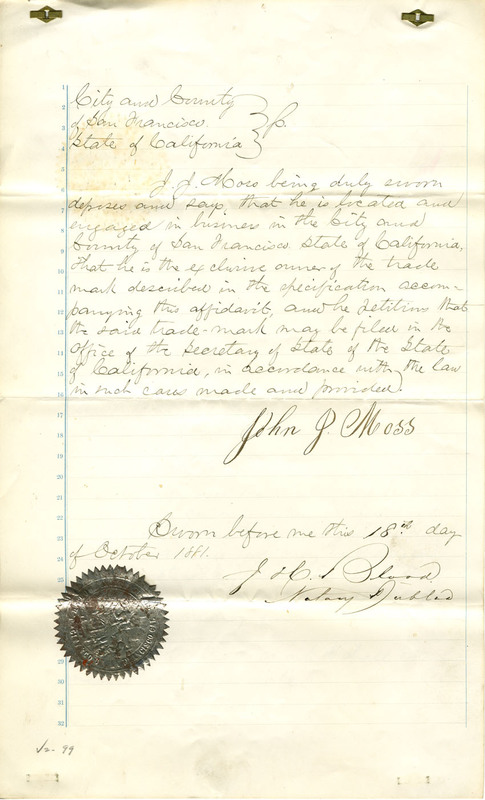 City and County
of San Francisco
State of California
J. J. Moss being duly sworn
deposes and says, that he is located and
engaged in business in the City and
County of San Francisco State of California,
that he is the exclusive owner of the trade
mark described in the specification accom-
panying this affidavit, and he petitions that
the said trade-mark may be filed in the
Office of the Secretary of State of the State
of California, in accordance with the law
in such cases made and provided.
John J. Moss
Sworn before me this 18th day
of October 1881.
J H Blood
Notary Public
99